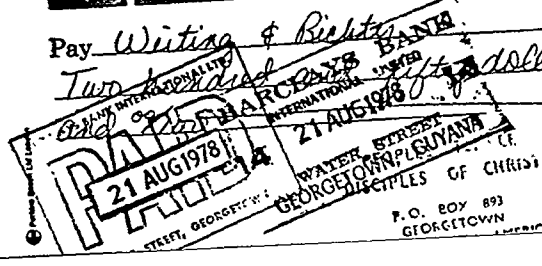 Pay Weiting & Richter
Two hundred and fifty doll
and
BANK INTERNATIONAL LTD
PAID
21 AUG 1978
STREET, GEORGETOWN
BARCLAYS BANK
INTERNATIONAL LIMITED
21 AUG 1978
14
WATER STREET
GEORGETOWN, GUYANA
DISCIPLES OF CHRIST
P.O. BOY 893
GEORGETOWN